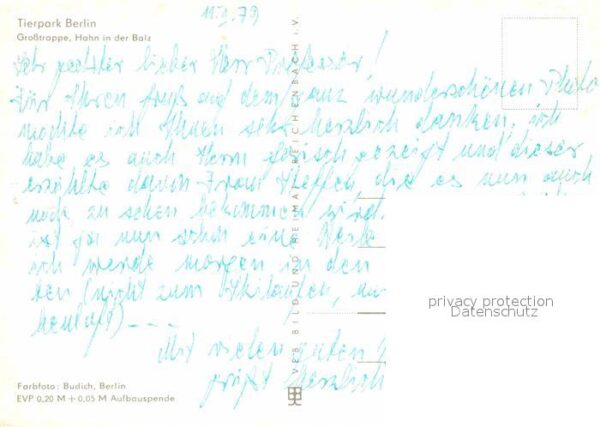 Tierpark Berlin
Großtrappe, Hahn in der Balz
Sehr geehrter lieber Herr Professor!
Für Ihren Gruß auf dem ganz wunderschönen Photo
möchte ich Ihnen sehr herzlich danken, ich
habe es auch Herrn gezeigt und dieser
erzählte davon Frau Steffen, die es nun auch
noch zu sehen bekommen wird.
ist ja nun schon eine
ich werde morgen in den
ten (nicht zum Skilaufen,
Mit vielen guten
grüßt herzlich
VEB BILD UND HEIMAT REICHENBACH i. V.
privacy protection
Datenschutz
Farbfoto: Budich, Berlin
EVP 0,20 M + 0,05 M Aufbauspende